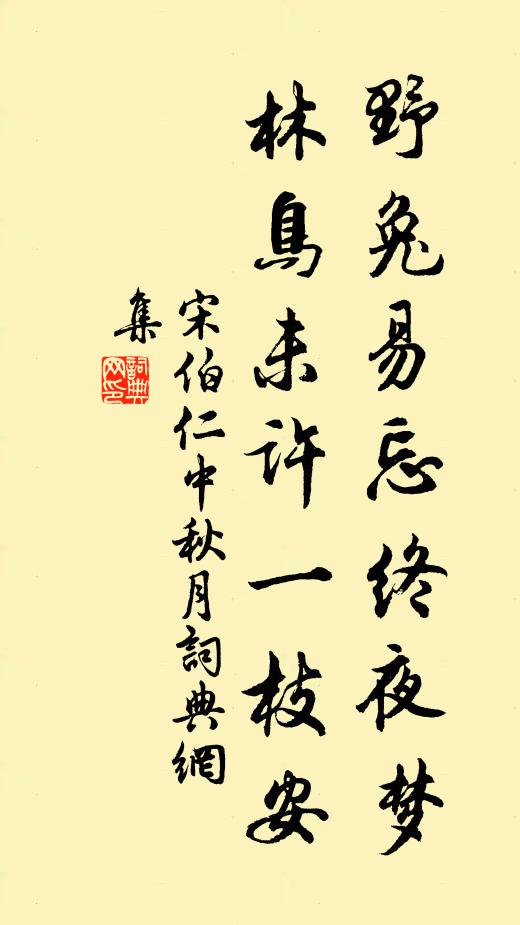 野兔易忘终夜梦
林鳥未许一枝安
宋伯仁中秋月詞典網
集
詞典网印